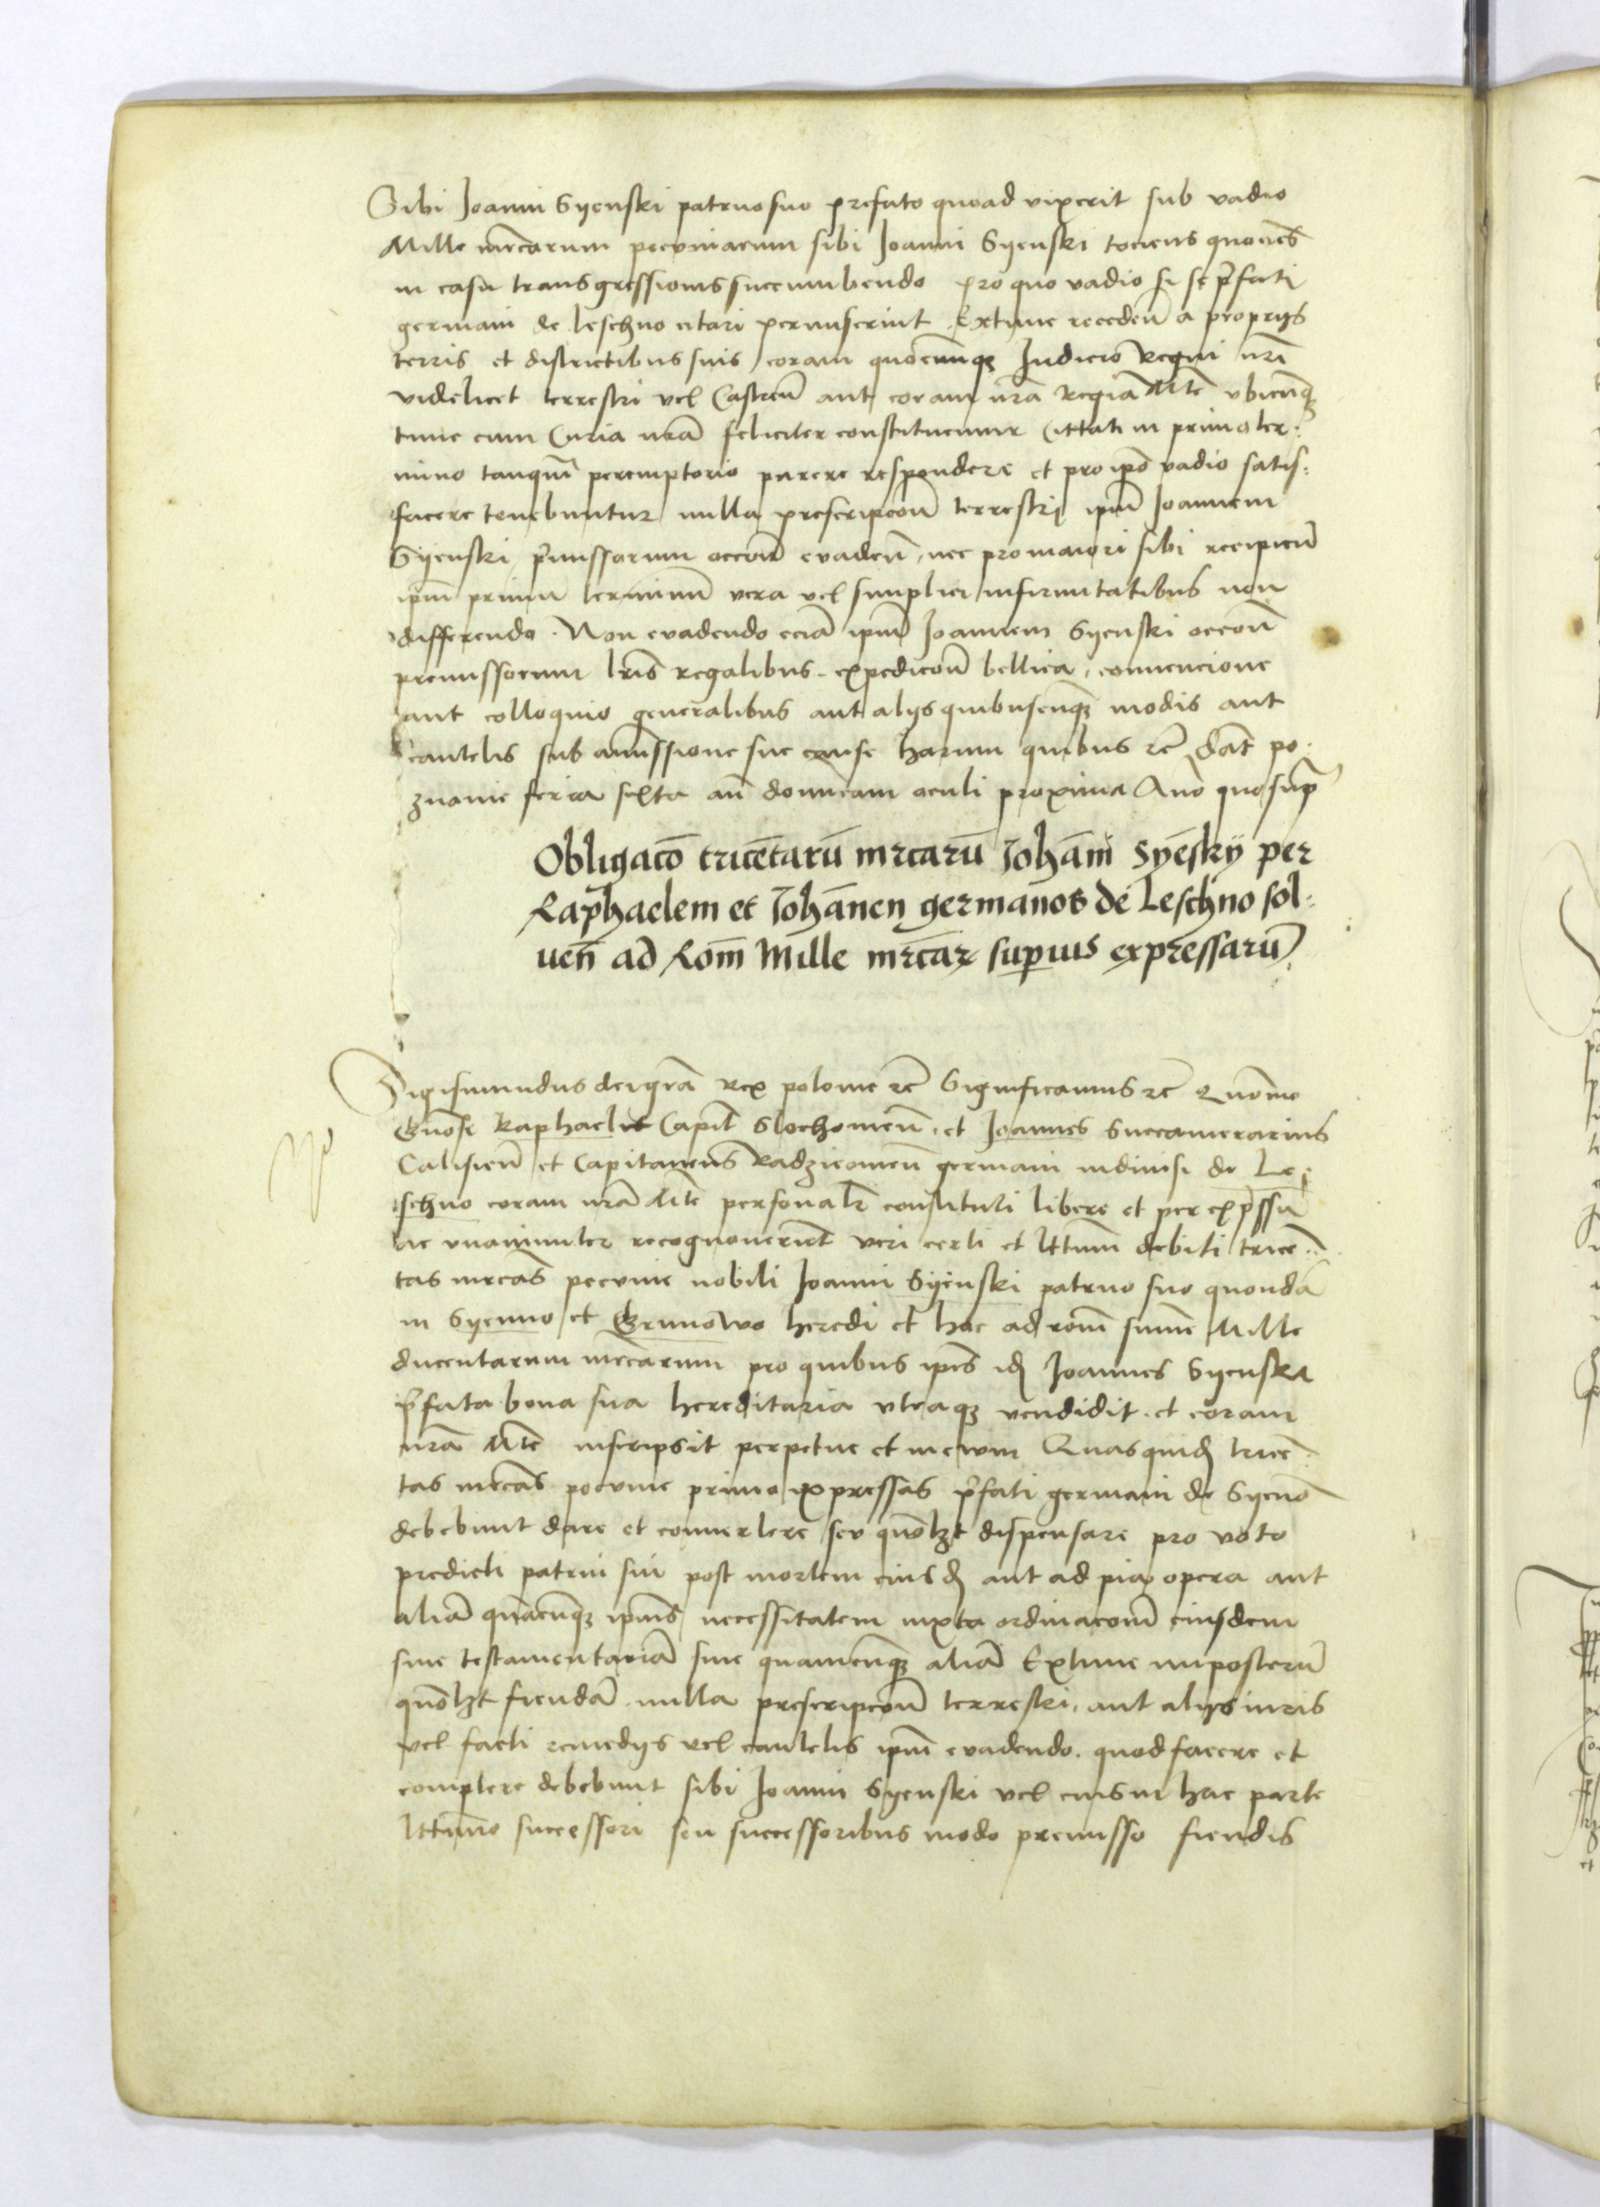 Sibi Joanni Syenski patruo suo prefato quoad vixerit sub vadio
Mille mrcarum pecuniarum sibi Joanni Syenski tociens quociens
in casu transgressionis succumbendo pro quo vadio si se p̄fati
germani de leschno citari permiserint Extunc recedeñ a proprijs
terris et districtibus suis coram quocunq₃ Iudicio Regni nr̄i
videlicet terrestri vel Castreñ aut coram nr̄a Regia Mte vbicunq₃
tunc cum Curia nr̄a feliciter constituemur Cittati in primo ter:
mino tanqm̄ peremptorio parere respondere et pro ip̄o vadio satis:
facere tenebuntur nulla prescripcoñ terrestri ip̄m Joannem
Syenski p̄missorum occoñ evadeñ nec pro maiori sibi recipieñ
ip̄m primū terminū vera vel simplici infirmitatibus non
differendo. Non evadendo eciā ip̄m Joannem Syenski occoñ
premissorum lr̄is regalibus. expedicoñ bellica, convencione
aut colloquio generalibus aut alijs quibuscunq₃ modis aut
cautelis sub amissione sue cause harum quibus rc̄ Dat̄ po:
znanie feria sexta an̄ dominicam oculi proxima Anō quo sup̄
Obligacō tricētarū mrcarū Johāni Syēsky per
Raphaelem et Johānen germanos de Leschno sol:
ueñ ad Rom̄ Mille mrcar₃ superius expressarū
Sigismundus dei gr̄a Rex polonie rc̄ Significamus rc̄ Quōmo
Gnōsi Raphael Capit̄ Slochomeñ. et Joannes Succamerarius
Calisieñ et Capitaneus Radzieomeñ germani indiuisi de Le:
schno coram nr̄a Mte personalr̄ constituti libere et per exp̄ssū
ac vnanimiter recognouerūt veri certi et lttimi debiti tricē:
tas mrcas pecunie nobili Joanni Syenski patruo suo quondā
in Syenno et Grunowo heredi et hac ad rom̄ sum̄e Mille
ducentarum mrcarum pro quibus ip̄is id₃ Joannes Syenski
p̄fata bona sua hereditaria vtraq₃ vendidit. et coram
nr̄a Mte inscripsit perpetue et in ewm Quasquid₃ tricē:
tas mrcas pecunie primo expressas p̄fati germani de Syenō
debebunt dare et convertere seu quōlz₃t dispensare pro voto
predicti patrui sui post mortem eiusd₃ aut ad pia opera aut
aliā quācunq₃ ip̄ius necessitatem iuxta ordinacoñ eiusdem
siue testamentariā siue quamcunq₃ aliā Extunc imposterū
quōlz₃t fiendā. nulla prescripcoñ terrestri, aut alijs iuris
vel facti remedijs vel cautelis ip̄m evadendo. quod facere et
complere debebunt sibi Joanni Syenski vel eius in hac parte
lttimo successori seu successoribus modo premisso fiendis